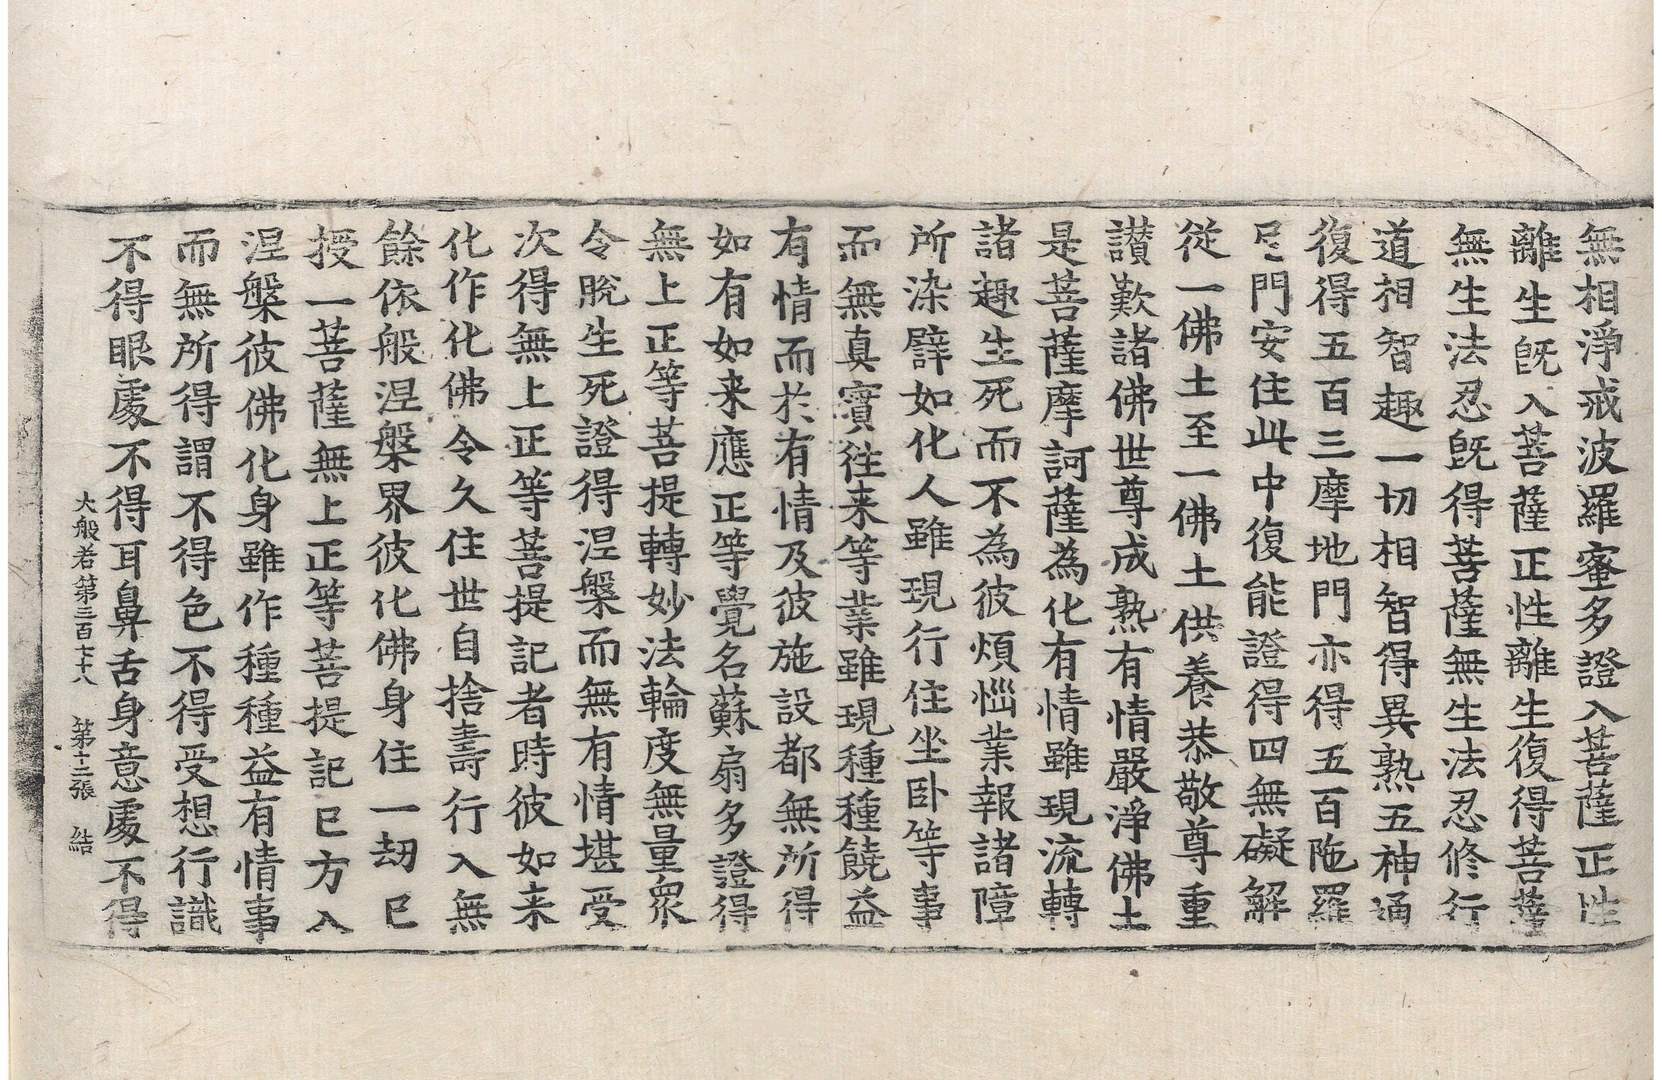 無相淨戒波羅蜜多證入菩薩正性
離生旣入菩薩正性離生復得菩薩
無生法忍旣得菩薩無生法忍修行
道相智趣一切相智得異熟五神通
復得五百三摩地門亦得五百陁羅
尼門安住此中復能證得四無礙解
從一佛土至一佛土供養恭敬尊重
讃歎諸佛世尊成熟有情嚴淨佛土
是菩薩摩訶薩為化有情雖現流轉
諸趣生死而不為彼煩惱業報諸障
所染譬如化人雖現行住坐卧等事
而無真實往来等業雖現種種饒益
有情而於有情及彼施設都無所得
如有如来應正等覺名蘇扇多證得
無上正等菩提轉妙法輪度無量衆
令脫生死證得涅槃而無有情堪受
次得無上正等菩提記者時彼如来
化作化佛令久住世自捨壽行入無
餘依般涅槃界彼化佛身住一劫已
授一菩薩無上正等菩提記已方入
涅槃彼佛化身雖作種種益有情事
而無所得謂不得色不得受想行識
不得眼處不得耳鼻舌身意處不得
大般若第三百七十八 第十二張 結